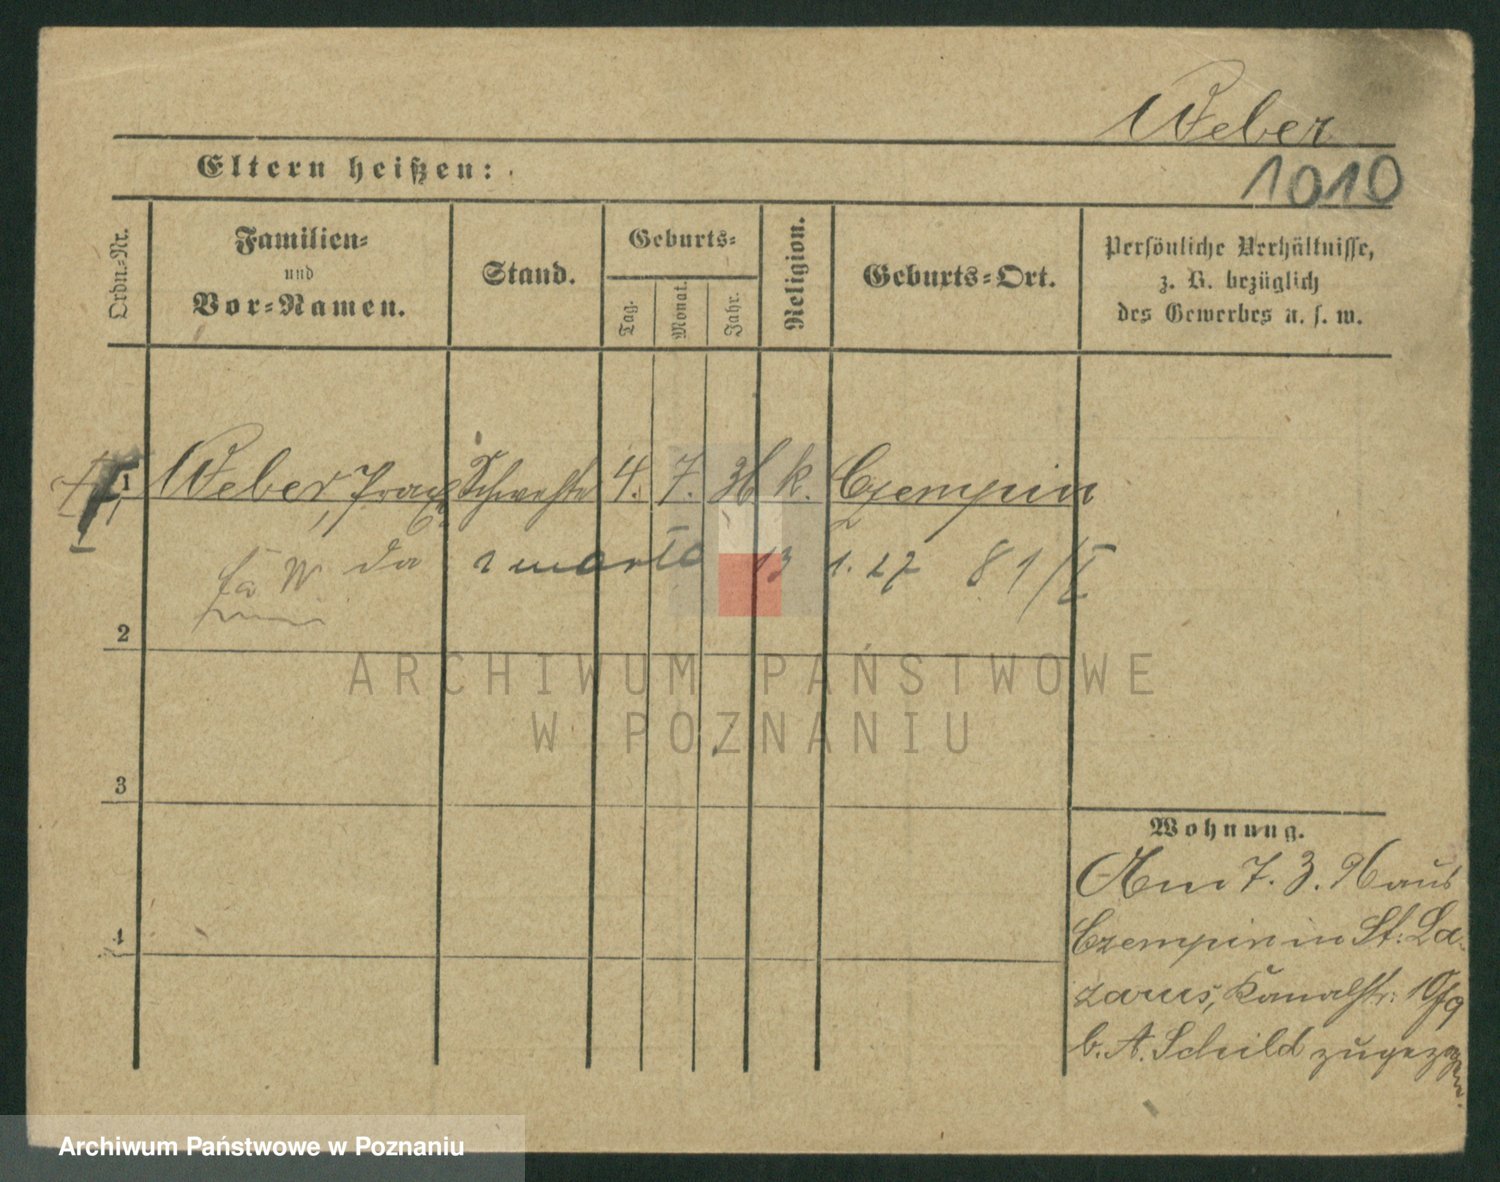 Weber
Eltern heißen:
1010
Ordn.-Nr.
Familien-
und
Vor-Namen.
Stand.
Geburts-
Tag.
Monat.
Jahr.
Religion.
Geburts-Ort.
Persönliche Verhältnisse,
z. B. bezüglich
des Gewerbes u. s. w.
1 Weber, 4. 7. 36 k. Czempin
zmarła 13 1. 27 81/I
2
3
4
Wohnung.
Am 7. 3. 96 aus
Czempin in St: La-
zarus, Kanalstr:
b. A. Schild zugezogen.
ARCHIWUM PAŃSTWOWE
W POZNANIU
Archiwum Państwowe w Poznaniu